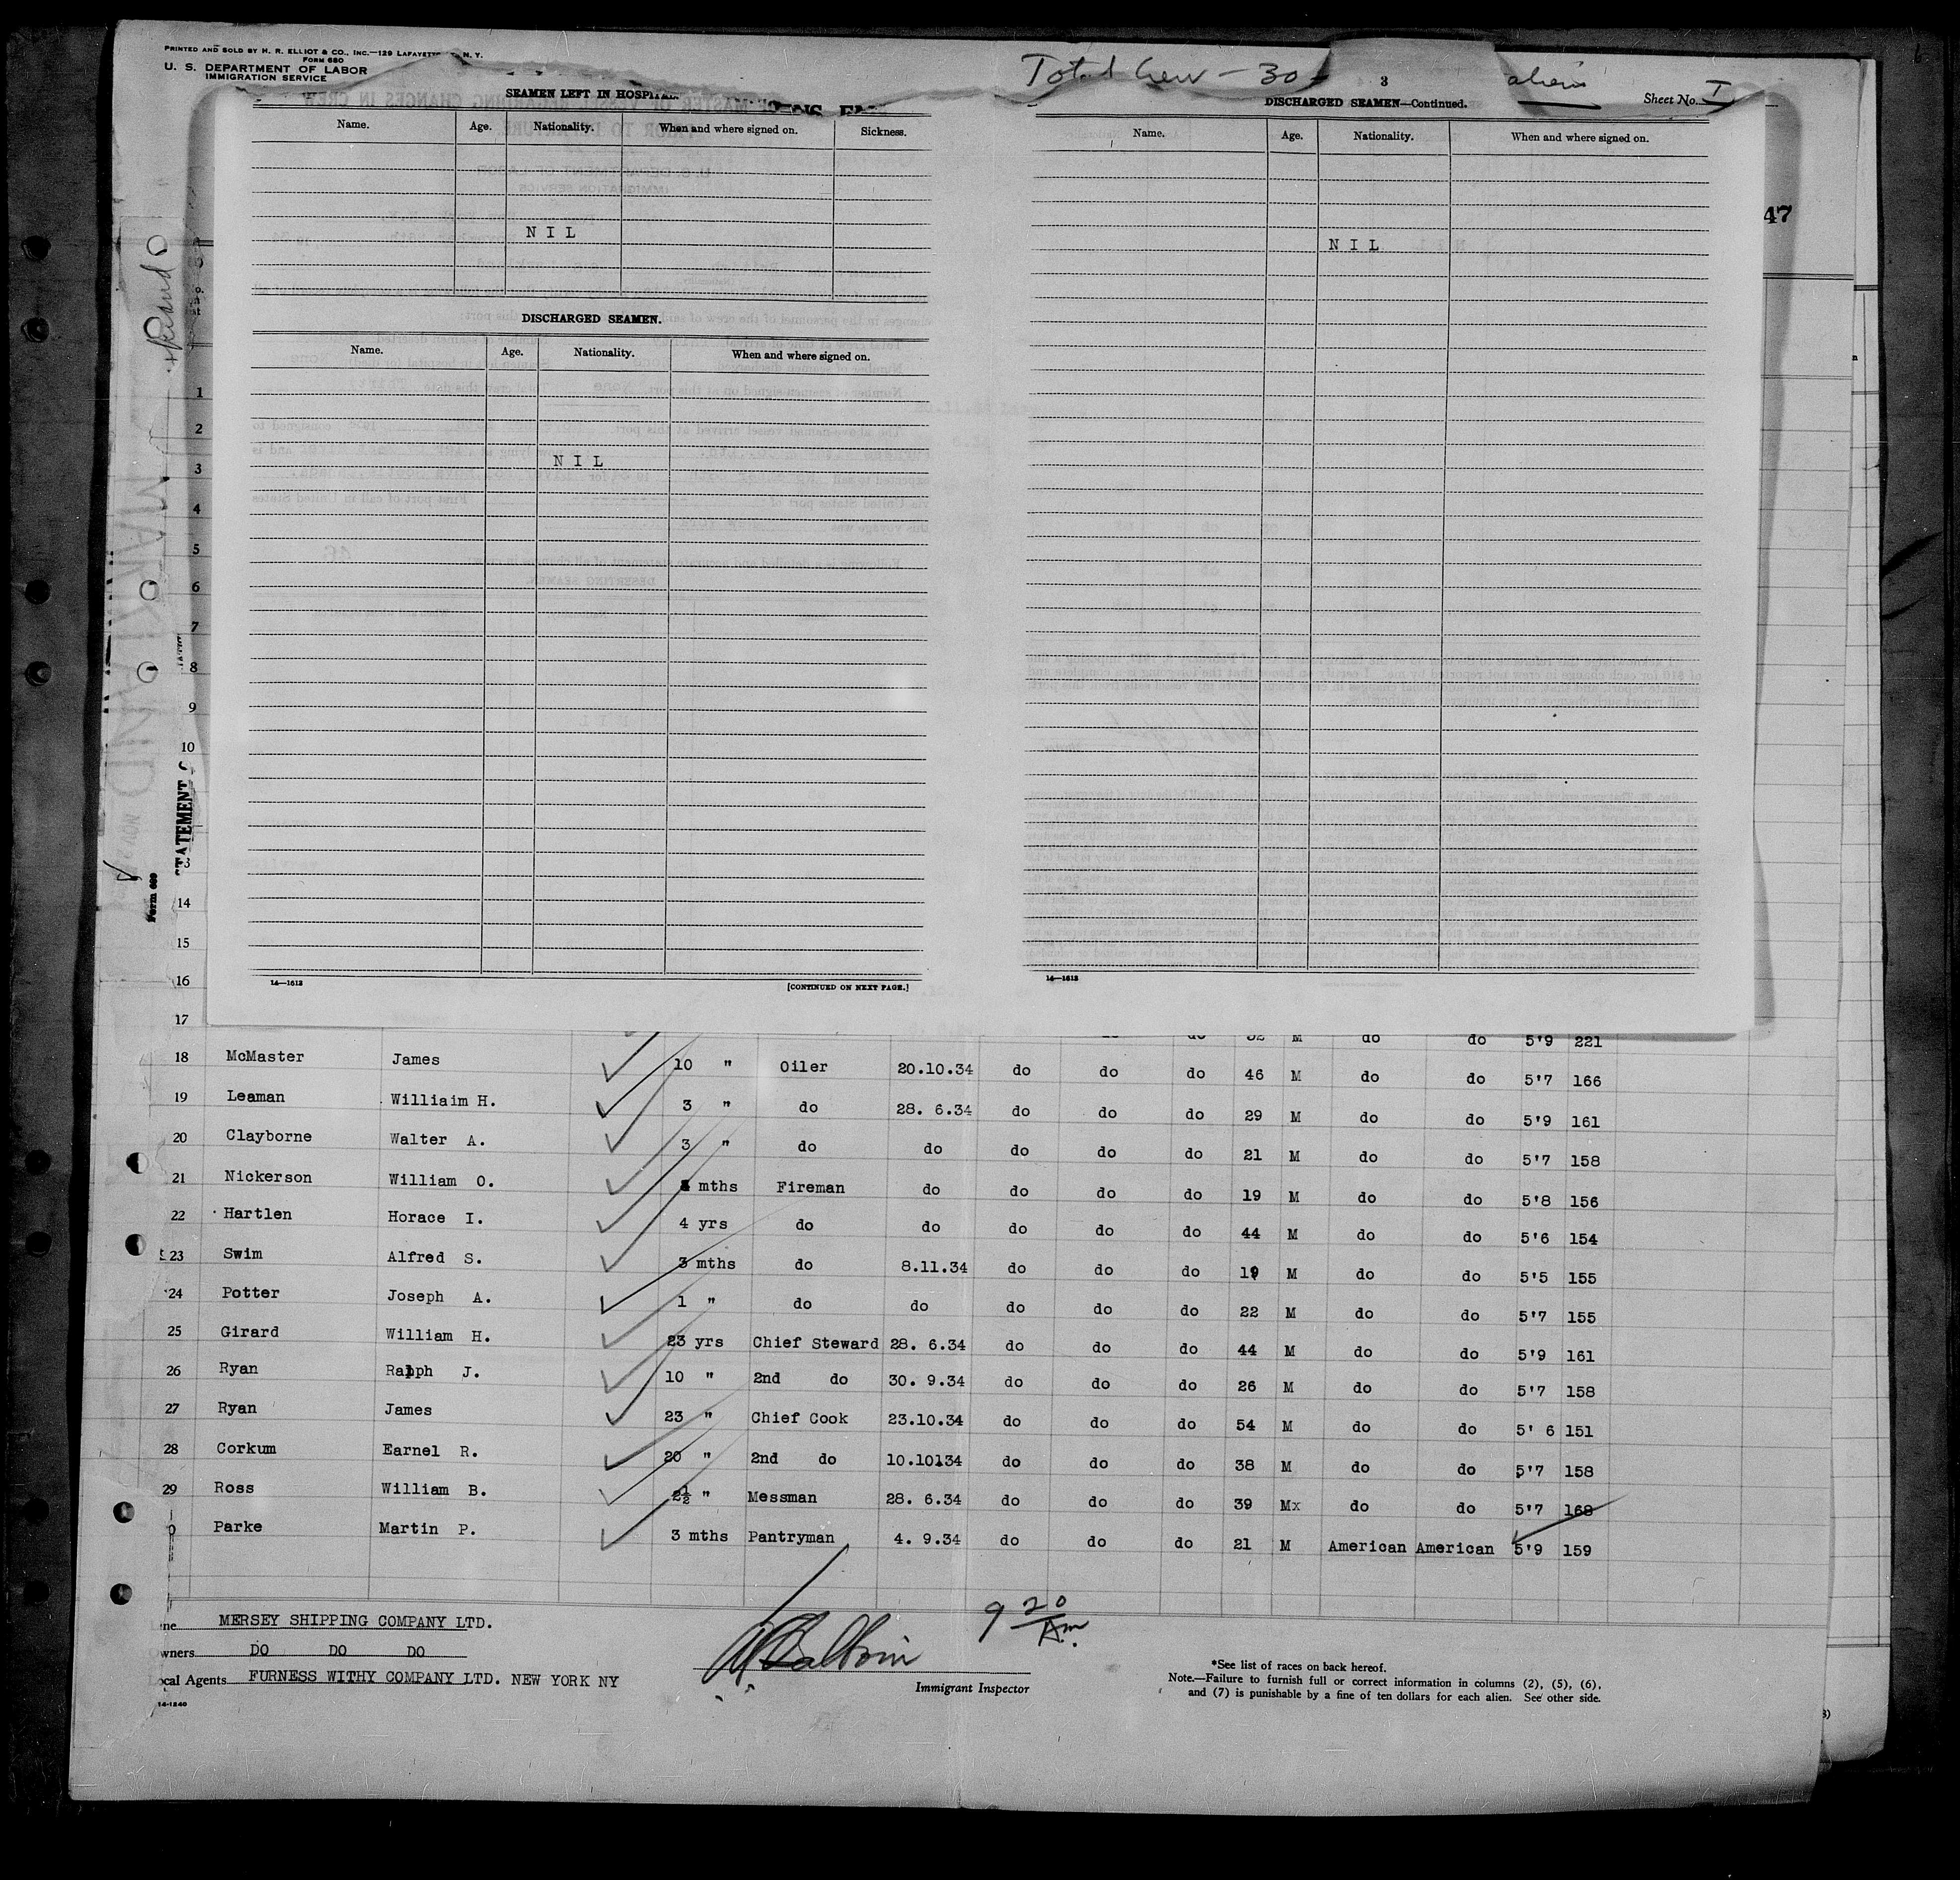 PRINTED AND SOLD BY H. R. ELLIOT & CO., INC.—129 LAFAYETTE N. Y.
FORM 680
U. S. DEPARTMENT OF LABOR
IMMIGRATION SERVICE
Total Crew - 30 - aliens
Sheet No. I
47
SEAMEN LEFT IN HOSPITAL
Name. Age. Nationality. When and where signed on. Sickness.
N I L
DISCHARGED SEAMEN.
Name. Age. Nationality. When and where signed on.
N I L
14—1613 [CONTINUED ON NEXT PAGE.]
3
DISCHARGED SEAMEN—Continued.
Name. Age. Nationality. When and where signed on.
N I L
14—1613
STATEMENT
Form 680
1
2
3
4
5
6
7
8
9
10
3
14
15
16
17 M do do 5'9 221
18 McMaster James 10 " Oiler 20.10.34 do do do 46 M do do 5'7 166
19 Leaman Williaim H. 3 " do 28. 6.34 do do do 29 M do do 5'9 161
20 Clayborne Walter A. 3 " do do do do do 21 M do do 5'7 158
21 Nickerson William O. mths Fireman do do do do 19 M do do 5'8 156
22 Hartlen Horace I. 4 yrs do do do do do 44 M do do 5'6 154
23 Swim Alfred S. 3 mths do 8.11.34 do do do 19 M do do 5'5 155
24 Potter Joseph A. 1 " do do do do do 22 M do do 5'7 155
25 Girard William H. 23 yrs Chief Steward 28. 6.34 do do do 44 M do do 5'9 161
26 Ryan Ralph J. 10 " 2nd do 30. 9.34 do do do 26 M do do 5'7 158
27 Ryan James 23 " Chief Cook 23.10.34 do do do 54 M do do 5' 6 151
28 Corkum Earnel R. 20 " 2nd do 10.10134 do do do 38 M do do 5'7 158
29 Ross William B. 2½ " Messman 28. 6.34 do do do 39 Mx do do 5'7 168
0 Parke Martin P. 3 mths Pantryman 4. 9.34 do do do 21 M American American 5'9 159
ine MERSEY SHIPPING COMPANY LTD.
wners DO DO DO
ocal Agents FURNESS WITHY COMPANY LTD. NEW YORK NY
14-1240
9 20 Am.
Immigrant Inspector
*See list of races on back hereof.
Note.—Failure to furnish full or correct information in columns (2), (5), (6),
and (7) is punishable by a fine of ten dollars for each alien. See other side.